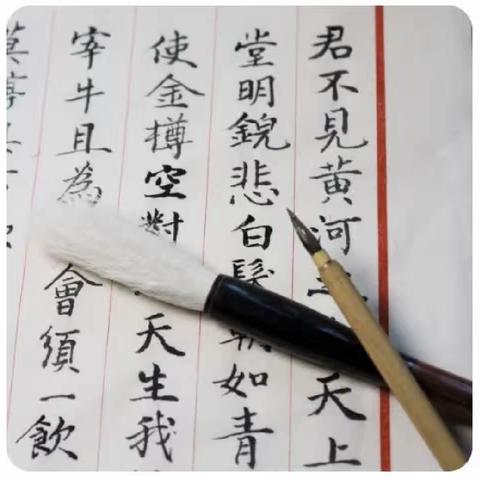 君不見黃河天上
堂明鏡悲白髮朝如青
使金樽空對天生我
宰牛且為會須一飲